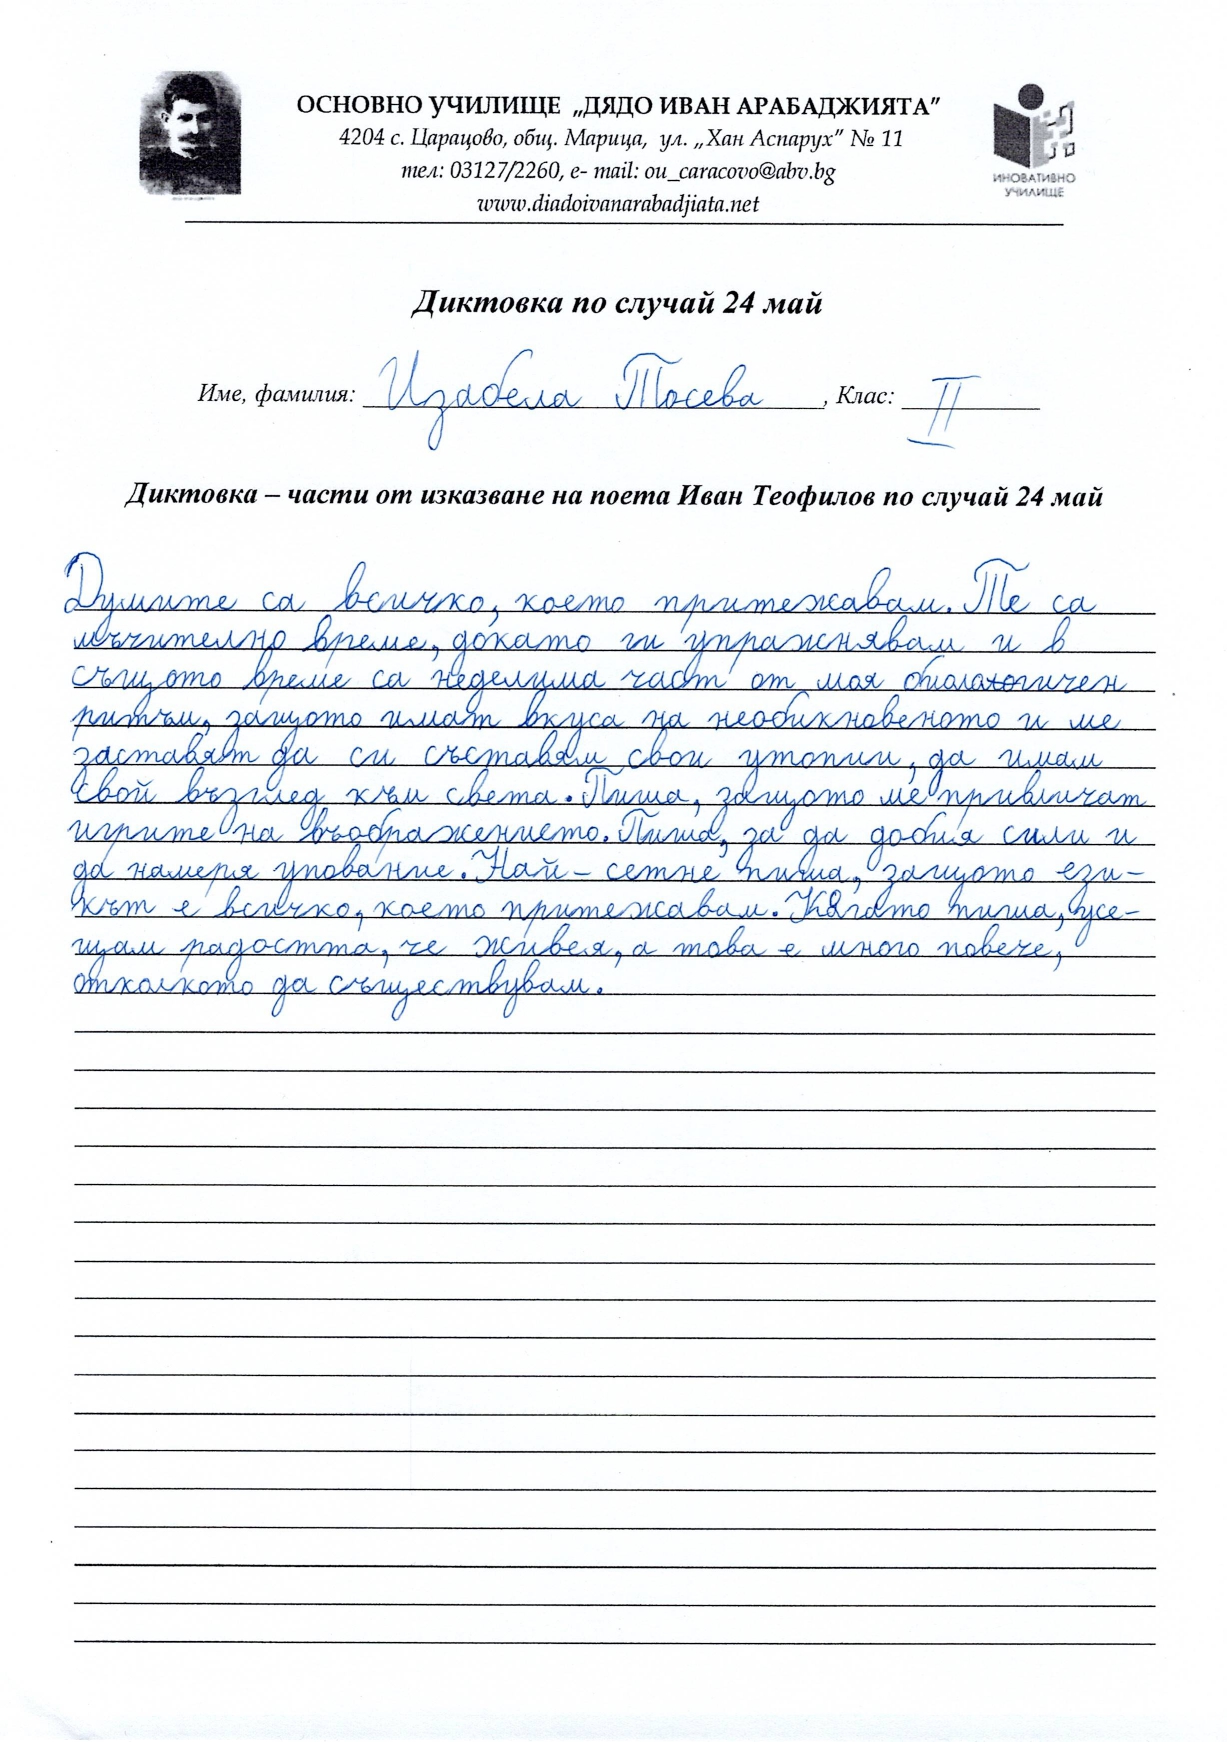 ОСНОВНО УЧИЛИЩЕ „ДЯДО ИВАН АРАБАДЖИЯТА”
4204 с. Царацово, общ. Марица, ул. „Хан Аспарух” № 11
тел: 03127/2260, e- mail: ou_caracovo@abv.bg
www.diadoivanarabadjiata.net
ИНОВАТИВНО
УЧИЛИЩЕ
Диктовка по случай 24 май
Име, фамилия: Изабела Тосева, Клас: II
Диктовка – части от изказване на поета Иван Теофилов по случай 24 май
Думите са всичко, което притежавам. Те са
мъчително време, докато ги упражнявам и в
същото време са неделима част от моя биологичен
ритъм, защото имат вкуса на необикновеното и ме
заставят да си съставям свои утопии, да имам
свой възглед към света. Пиша, защото ме привличат
игрите на въображението. Пиша, за да добия сили и
да намеря упование. Най - сетне пиша, защото ези-
кът е всичко, което притежавам. Когато пиша, усе-
щам радостта, че живея, а това е много повече,
отколкото да съществувам.